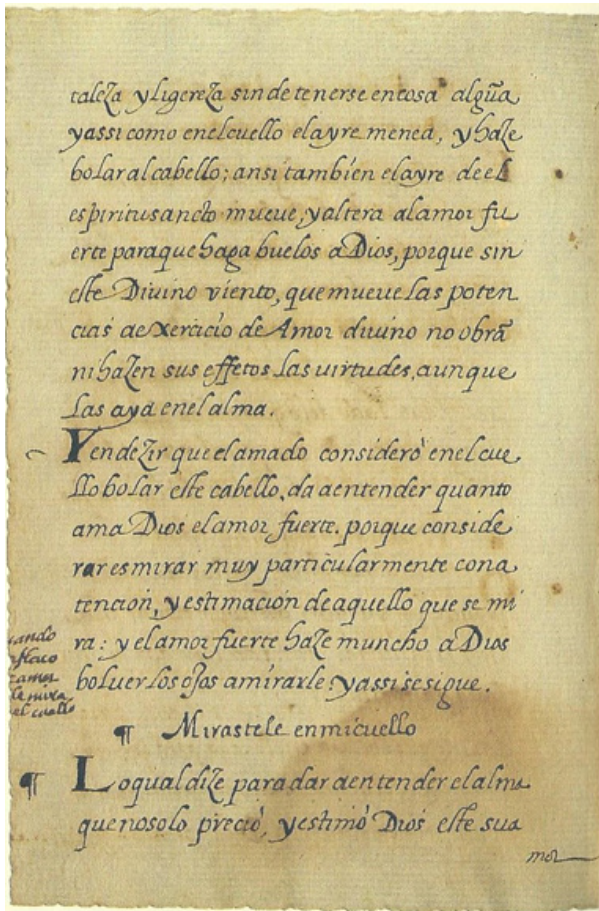 taleza y ligereza sin detenerse en cosa algũa
y assi como en el cuello el ayre menea, y haze
bolar al cabello; ansi tambien el ayre de el
espiritu sancto mueve, y altera al amor fu
erte para que haga buelos a Dios, porque sin
este Divino viento, que mueve las poten
cias a exercicio de Amor divino no obrã
ni hazen sus effetos las virtudes, aunque
las aya en el alma.
Y en dezir que el amado consideró en el cue
llo bolar este cabello, da a entender quanto
ama Dios el amor fuerte. porque conside
rar es mirar muy particularmente con a
tencion, y estimación de aquello que se mi
ra: y el amor fuerte haze muncho a Dios
bolver los ojos a mirarle: y assi se sigue.
¶ Mirastele en mi cuello
¶ Lo qual dize para dar a entender el alma
que no solo preció, y estimó Dios este su a
mor
ando
flaco
amor
le mira
el cuello